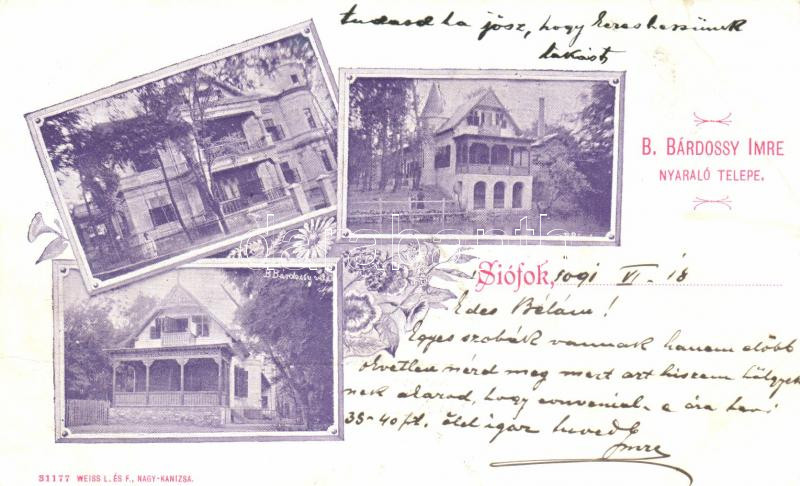 tudasd ha jösz, hogy kereshessünk
lakást
B. BÁRDOSSY IMRE
NYARALÓ TELEPE.
Siófok, 1901 VI. 18
Édes Bélám!
Egyes szobák vannak hanem előbb
okvetlen nézd meg mert azt hiszem hölgyek
nek akarod, hogy conveniál-e ára havi
35-40 ft. ölel igaz híved
Imre
B. Bárdossy
31177 WEISS L. ÉS F., NAGY-KANIZSA.